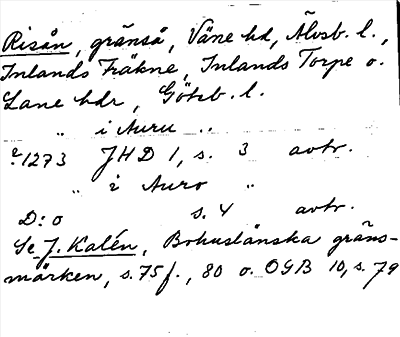 Risån, gränså, Väne hd, Älvsb. l.,
Inlands Fräkne, Inlands Torpe o.
Lane hdr, Göteb. l.
„ i Auru „
1273 JHD 1, s. 3 avtr.
„ i Auro „
D:o s. 4 avtr.
Se J. Kalén, Bohuslänska gräns-
märken, s. 75 f., 80 o. OGB 10, s. 79